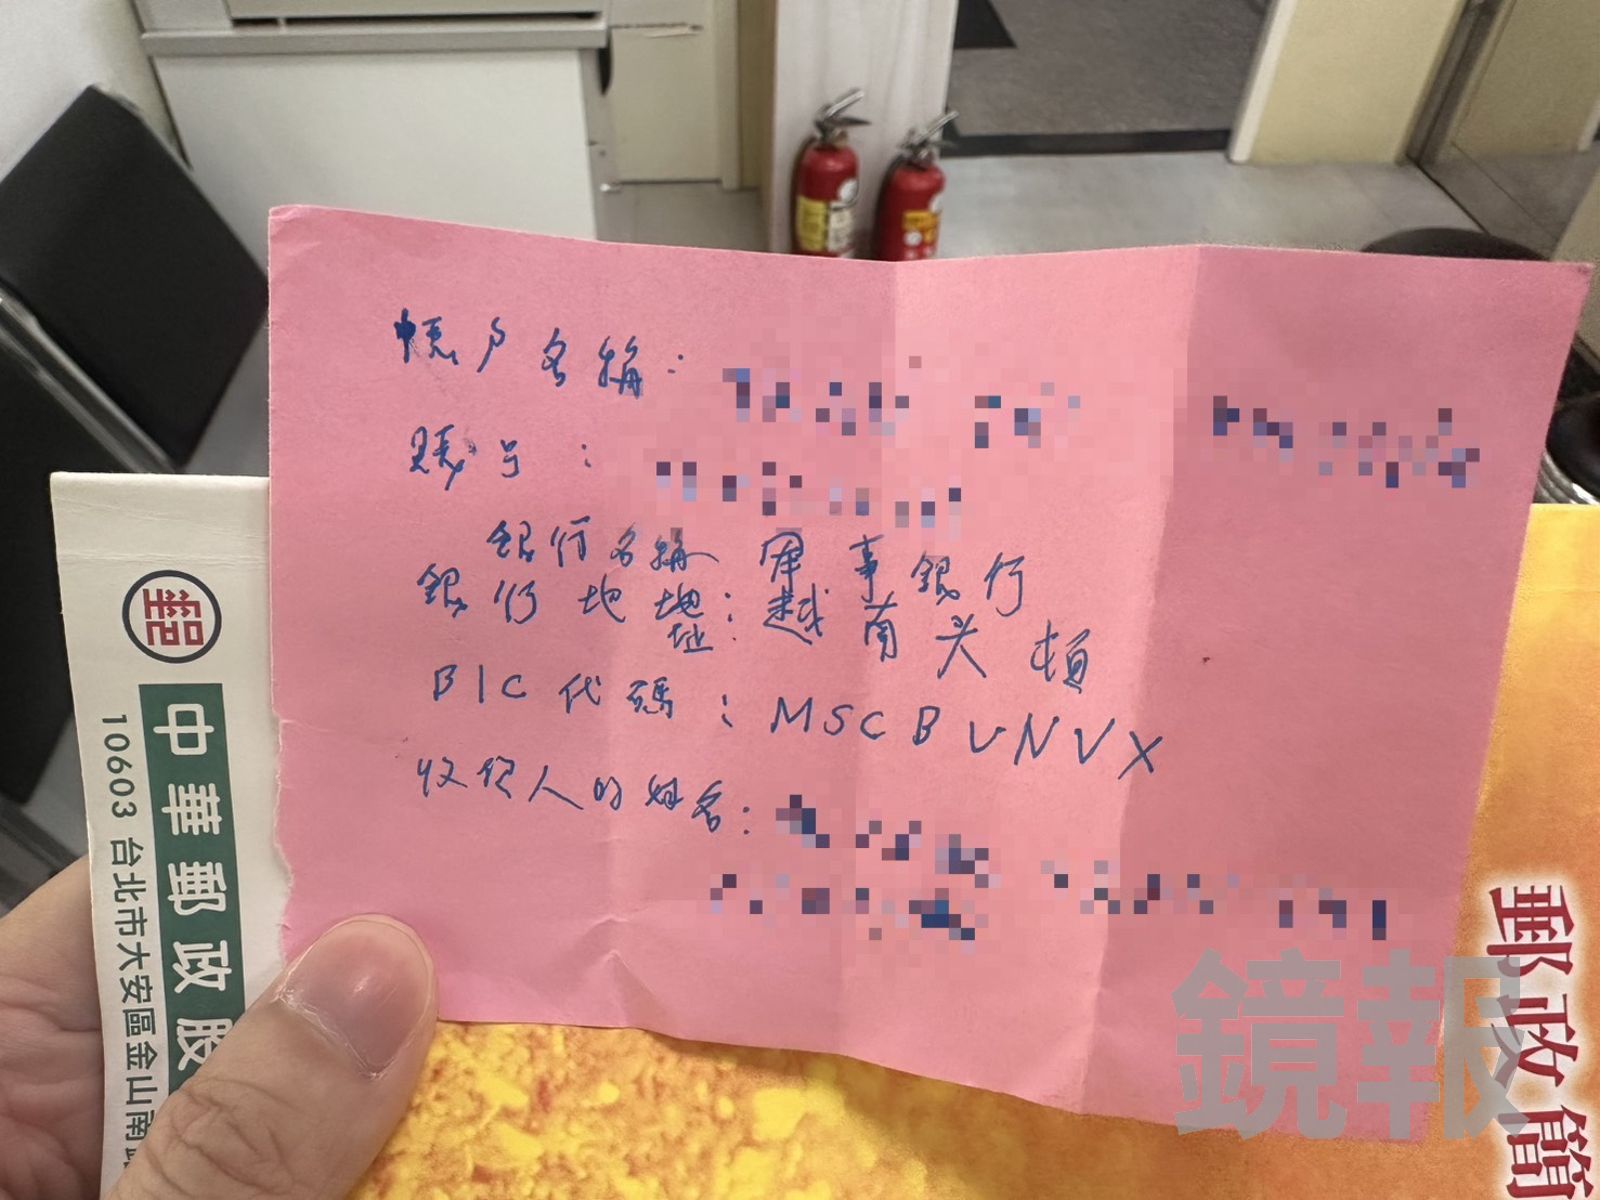 帳户名稱：
賬号：
銀行名稱 軍事銀行
銀行地址：越南头頓
址
BIC代碼：MSCBVNVX
收 人的姓名：
中華郵政股
10603 台北市大安區金山南路
郵政簡
鏡報